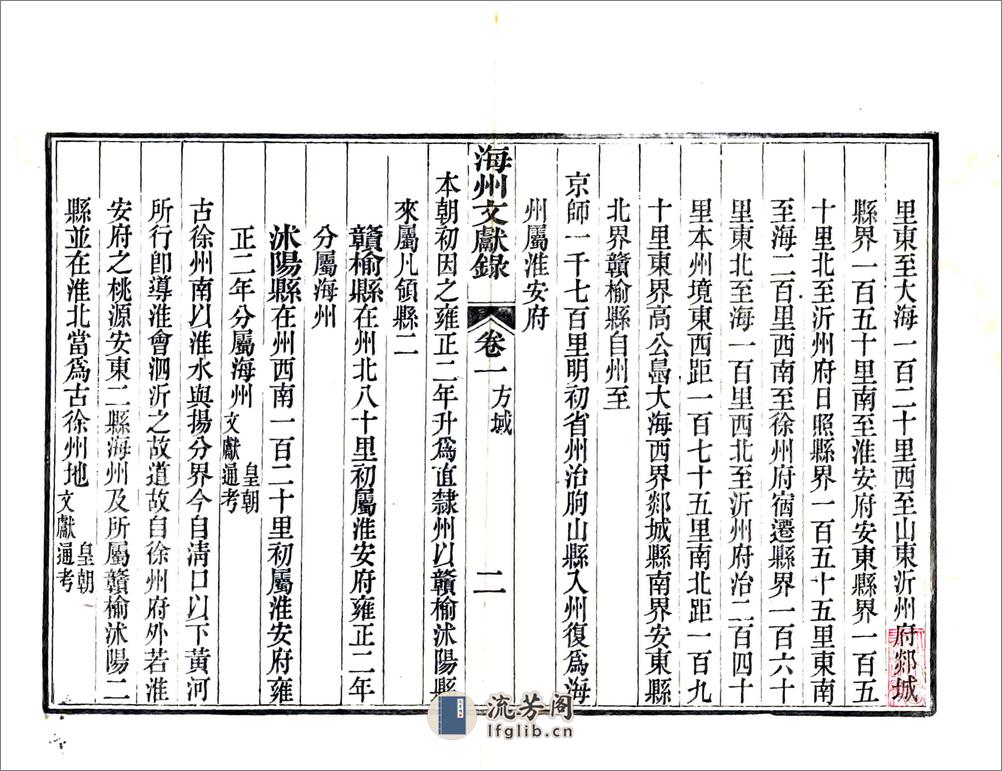 里東至大海一百二十里西至山東沂州府郯城
縣界一百五十里南至淮安府安東縣界一百五
十里北至沂州府日照縣界一百五十五里東南
至海二百里西南至徐州府宿遷縣界一百六十
里東北至海一百里西北至沂州府治二百四十
里本州境東西距一百七十五里南北距一百九
十里東界高公島大海西界郯城縣南界安東縣
北界贛榆縣自州至
京師一千七百里明初省州治朐山縣入州復為海
州屬淮安府
海州文獻錄 卷一 方域 二
本朝初因之雍正二年升爲直隸州以贛榆沭陽縣
來屬凡領縣二
贛榆縣在州北八十里初屬淮安府雍正二年
分屬海州
沭陽縣在州西南一百二十里初屬淮安府雍
正二年分屬海州皇朝文獻通考
古徐州南以淮水與揚分界今自清口以下黃河
所行卽導淮會泗沂之故道故自徐州府外若淮
安府之桃源安東二縣海州及所屬贛榆沭陽二
縣並在淮北當爲古徐州地皇朝文獻通考
流芳阁
lfglib.cn